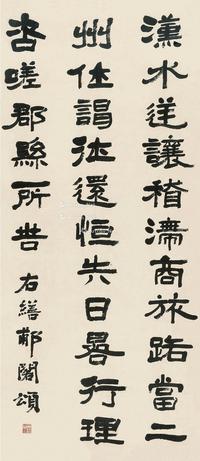 漢水逆讓稽滯商旅路當二
州休謁往還恒失日晷行理
咨嗟郡縣所苦 右繕郙閣頌